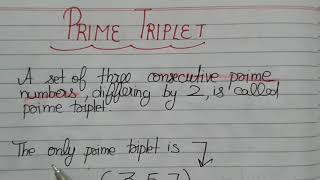 PRIME TRIPLET
A set of three consecutive prime
numbers, differing by 2, is called
prime triplet.
The only prime triplet is
(3,5,7)